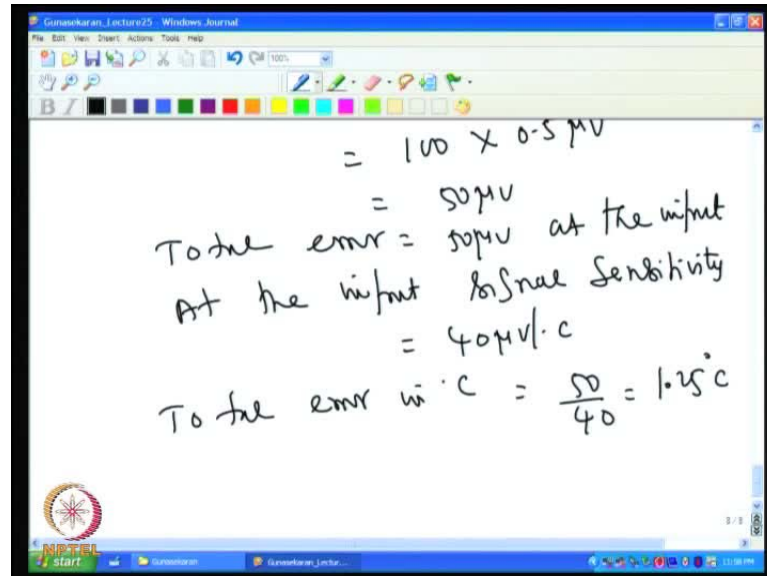 Gunasekaran_Lecture25 - Windows Journal
File Edit View Insert Actions Tools Help
100%
B I
= 100 X 0.5 μV
= 50μV
Total error = 50μV at the input
At the input signal sensitivity
= 40μV/°C
Total error in °C = 50/40 = 1.25°C
3/3
NPTEL
start Gunasekaran Gunasekaran_Lectur... 11:08 PM